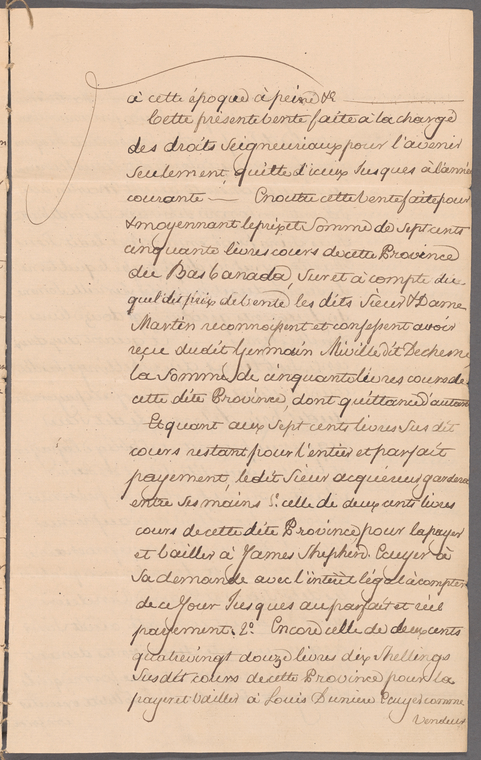 à cette époque à peine &c
Cette présente Vente faite à la charge
des droits Seigneuriaux pour l'avenir
Seulement, quitte d'iceux Jusques à l'année
courante — En outre cette Vente faite pour
& moyennant le prix et Somme de Sept cents
cinquante livres cours de cette Province
du Bas Canada, Sur et à compte du
quel dit prix de Vente les dits Sieur & Dame
Martin reconnoissent et confessent avoir
reçu du dit Germain Miville dit Dechesne
la Somme de cinquante livres cours de
cette dite Province, dont quittance d'autant
Et quant aux Sept cents livres Sus dit
cours restant pour l'entier et parfait
payement, le dit Sieur acquéreur gardera
entre Ses mains 1° celle de deux cents livres
cours de cette dite Province pour la payer
et bailler à James Shepherd Ecuyer à
Sa demande avec l'intérêt légal à compter
de ce Jour Jusques au parfait et réel
payement. 2° Encore celle de deux cents
quatrevingt douze livres dix Shellings
Sus dit cours de cette Province pour la
payer et bailler à Louis Duniere Ecuyer comme
Vendeur